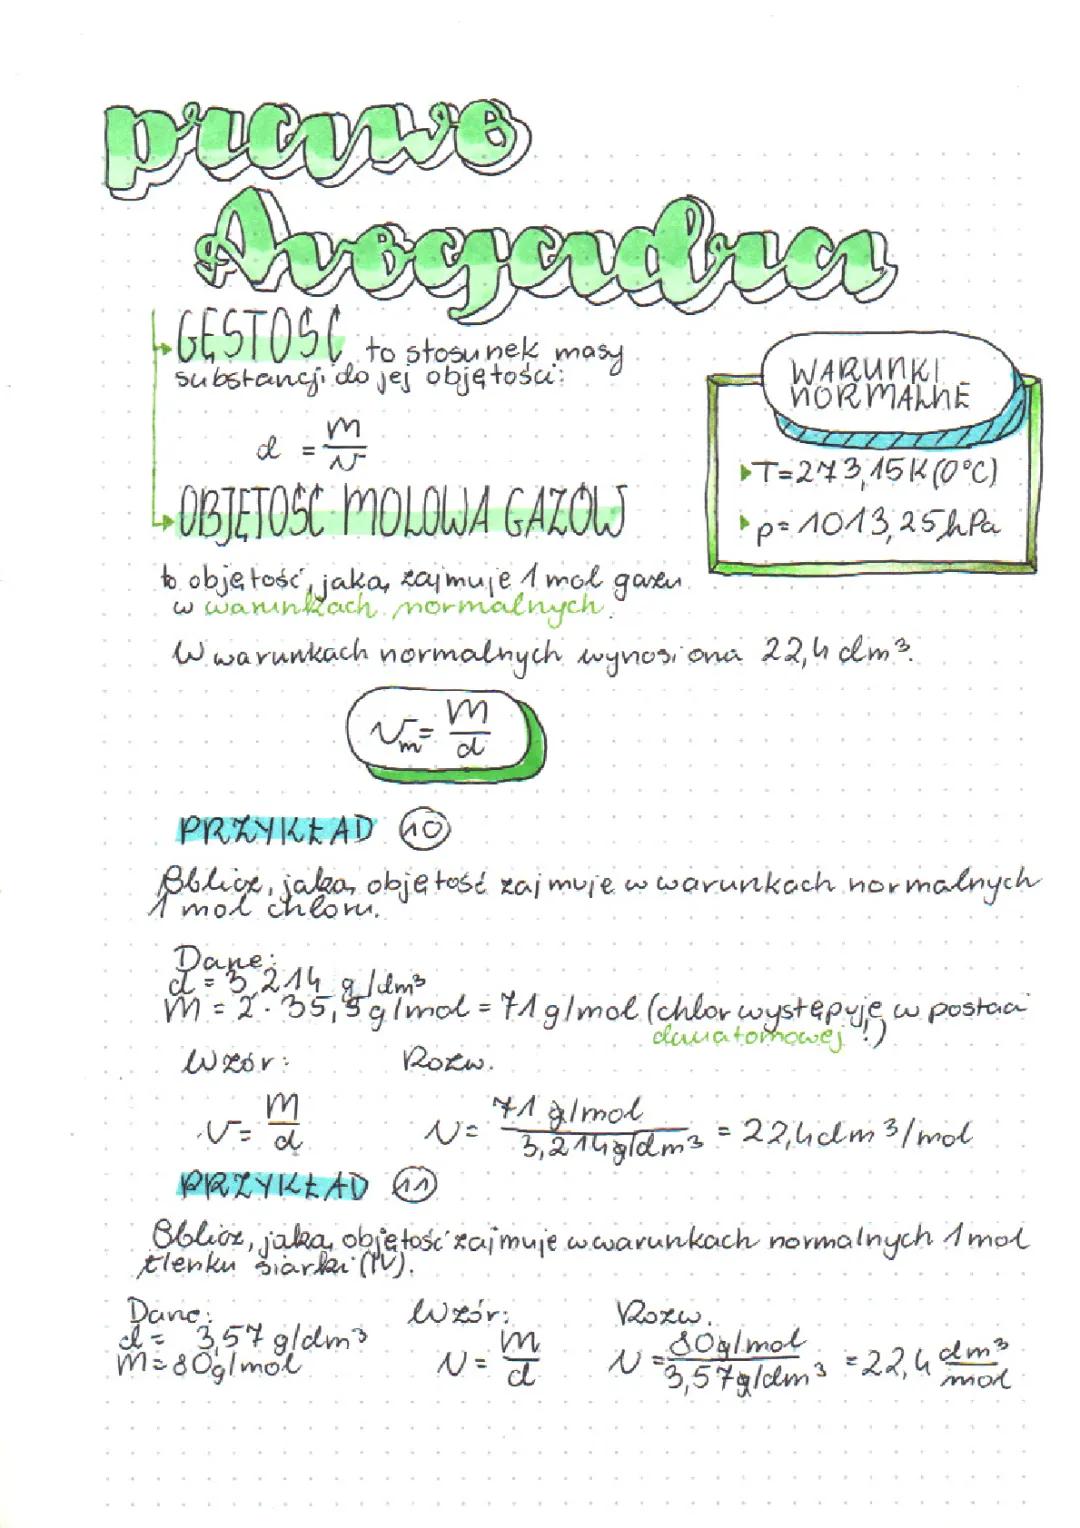 prawo
Avogadra
GĘSTOŚĆ to stosunek masy
substancji do jej objętości:
d = m/v
OBJĘTOŚĆ MOLOWA GAZÓW
WARUNKI
NORMALNE
T=273,15K (0°C)
p= 1013,25 hPa
to objętość, jaką zajmuje 1 mol gazu
w warunkach normalnych.
W warunkach normalnych wynosi ona 22,4 dm³.
Vm = M/d
PRZYKŁAD 10
Oblicz, jaką objętość zajmuje w warunkach normalnych
1 mol chloru.
Dane:
d = 3,214 g/dm³
M = 2 · 35,5 g/mol = 71 g/mol (chlor występuje w postaci
dwuatomowej!)
Wzór: Rozw.
V = M/d V = 71 g/mol / 3,214 g/dm³ = 22,4 dm³/mol
PRZYKŁAD 11
Oblicz, jaką objętość zajmuje w warunkach normalnych 1 mol
tlenku siarki (IV).
Dane: Wzór: Rozw.
d = 3,57 g/dm³
M = 80 g/mol V = M/d V = 80 g/mol / 3,57 g/dm³ = 22,4 dm³/mol